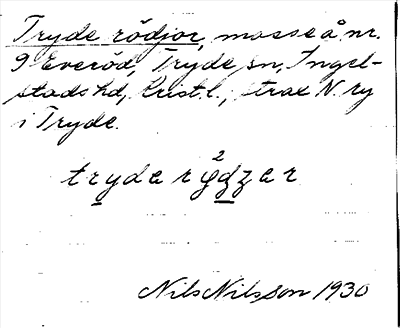 Tryde rödjor, mosse å nr.
9 Everöd, Tryde sn, Ingel-
stads hd, Krist. l., strax N. ry
i Tryde.
Nils Nilsson 1930